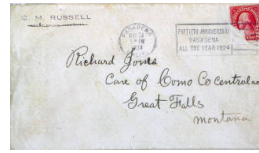 C. M. RUSSELL
PASADENA
1924
FORTIETH ANNIVERSARY
PASADENA
ALL THE YEAR 1924
Richard Jones
Care of Como Co
Great Falls
Montana